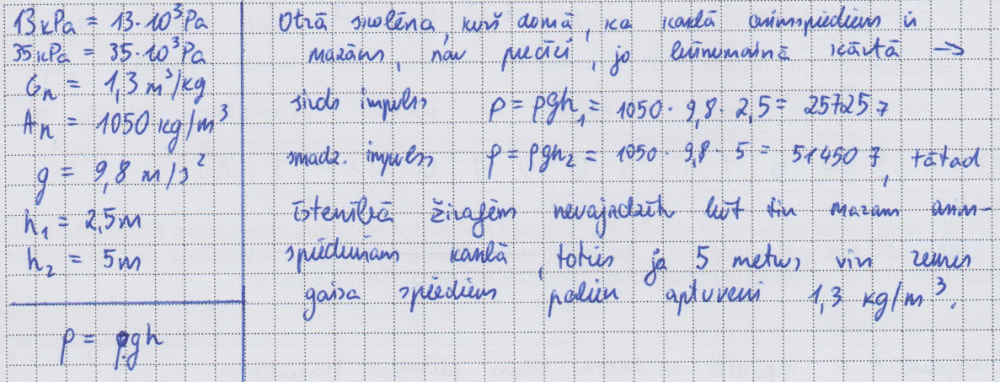 13 kPa = 13·10³Pa
35 kPa = 35·10³Pa
Gn = 1,3 m³/kg
An = 1050 kg/m³
g = 9,8 m/s²
h₁ = 2,5m
h₂ = 5m
p = ρgh
Otrā skolēna, kurš domā, ka kaklā asinsspiediens ir
mazāks, nav precīzi, jo
sirds impulss p = ρgh₁ = 1050 · 9,8 · 2,5 = 25725
smadz. impulss p = ρgh₂ = 1050 · 9,8 · 5 = 51450, tātad
īstenībā žirafēm nevajadzētu būt tik mazam asins-
spiedienam kaklā, toties ja 5 metrus virs zemes
gaisa spiediens paliek aptuveni 1,3 kg/m³.